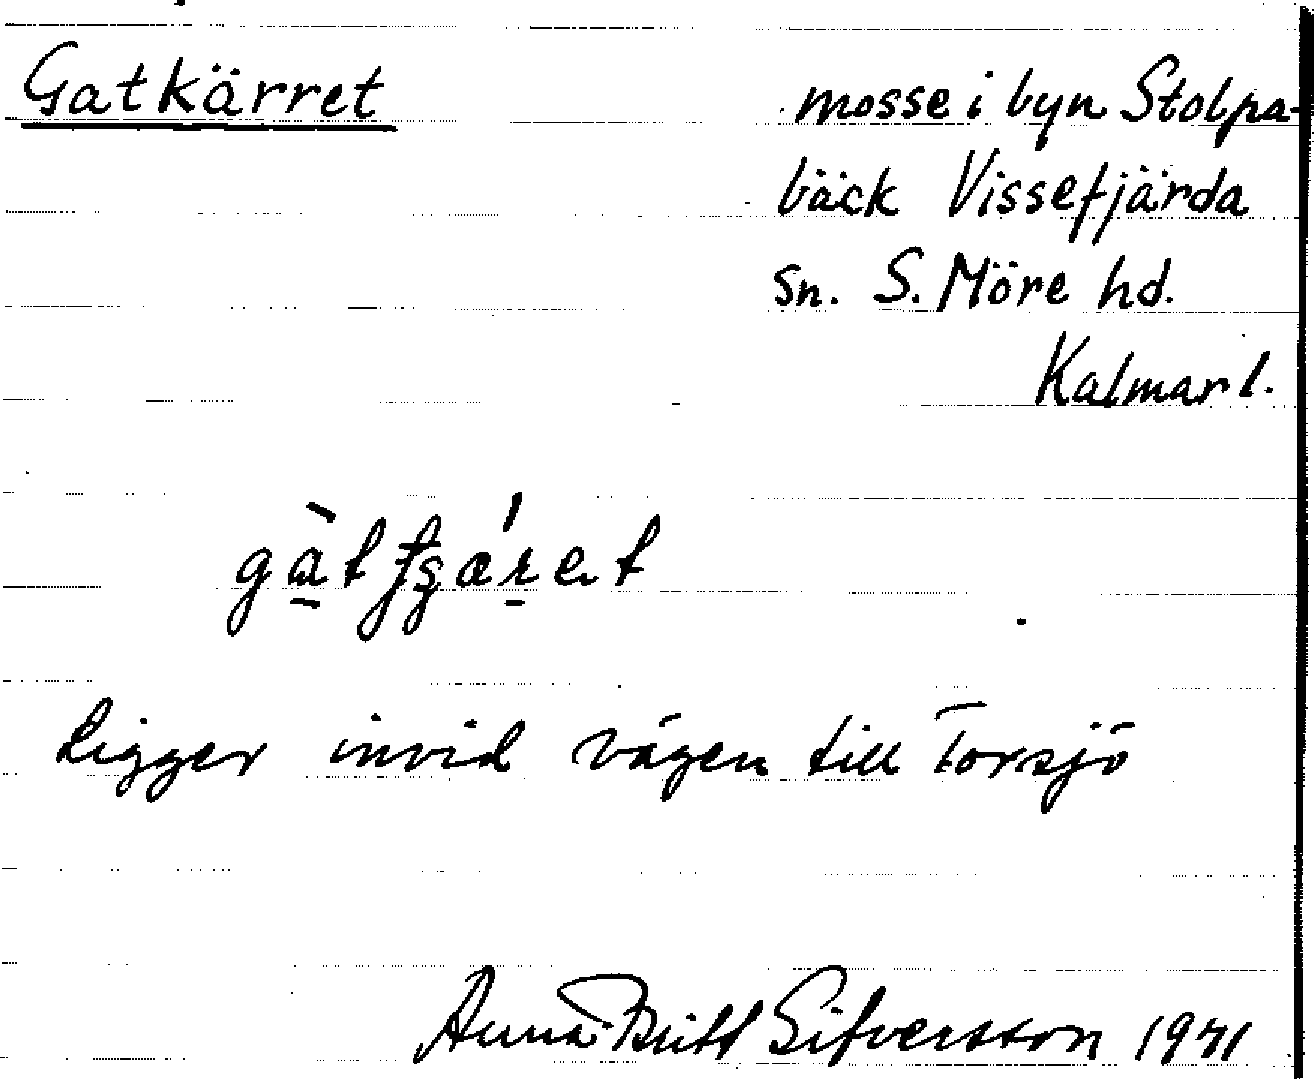 Gatkärret
mosse i byn Stolpa-
bäck Vissefjärda
sn. S. Möre hd.
Kalmar l.
Ligger invid vägen till Torsjö
Anna-Britt Sifversson 1971